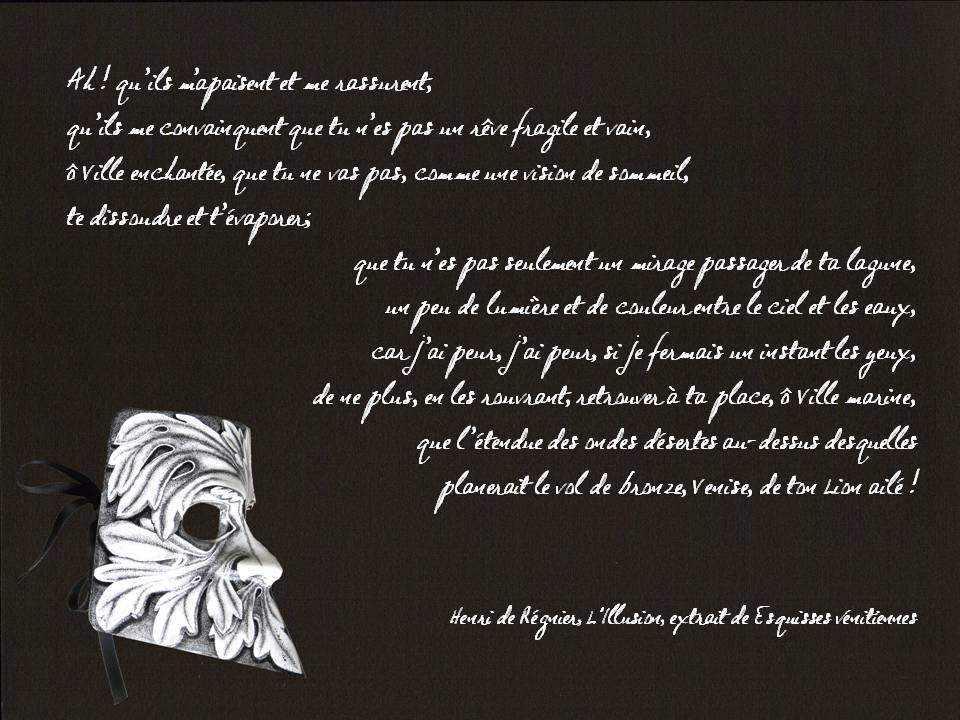 Ah ! qu'ils m'apaisent et me rassurent,
qu'ils me convainquent que tu n'es pas un rêve fragile et vain,
ô Ville enchantée, que tu ne vas pas, comme une vision de sommeil,
te dissoudre et t'évaporer;
que tu n'es pas seulement un mirage passager de ta lagune,
un peu de lumière et de couleur entre le ciel et les eaux,
car j'ai peur, j'ai peur, si je fermais un instant les yeux,
de ne plus, en les rouvrant, retrouver à ta place, ô Ville marine,
que l'étendue des ondes désertes au-dessus desquelles
planerait le vol de bronze, Venise, de ton Lion ailé !
Henri de Régnier, L'Illusion, extrait de Esquisses vénitiennes